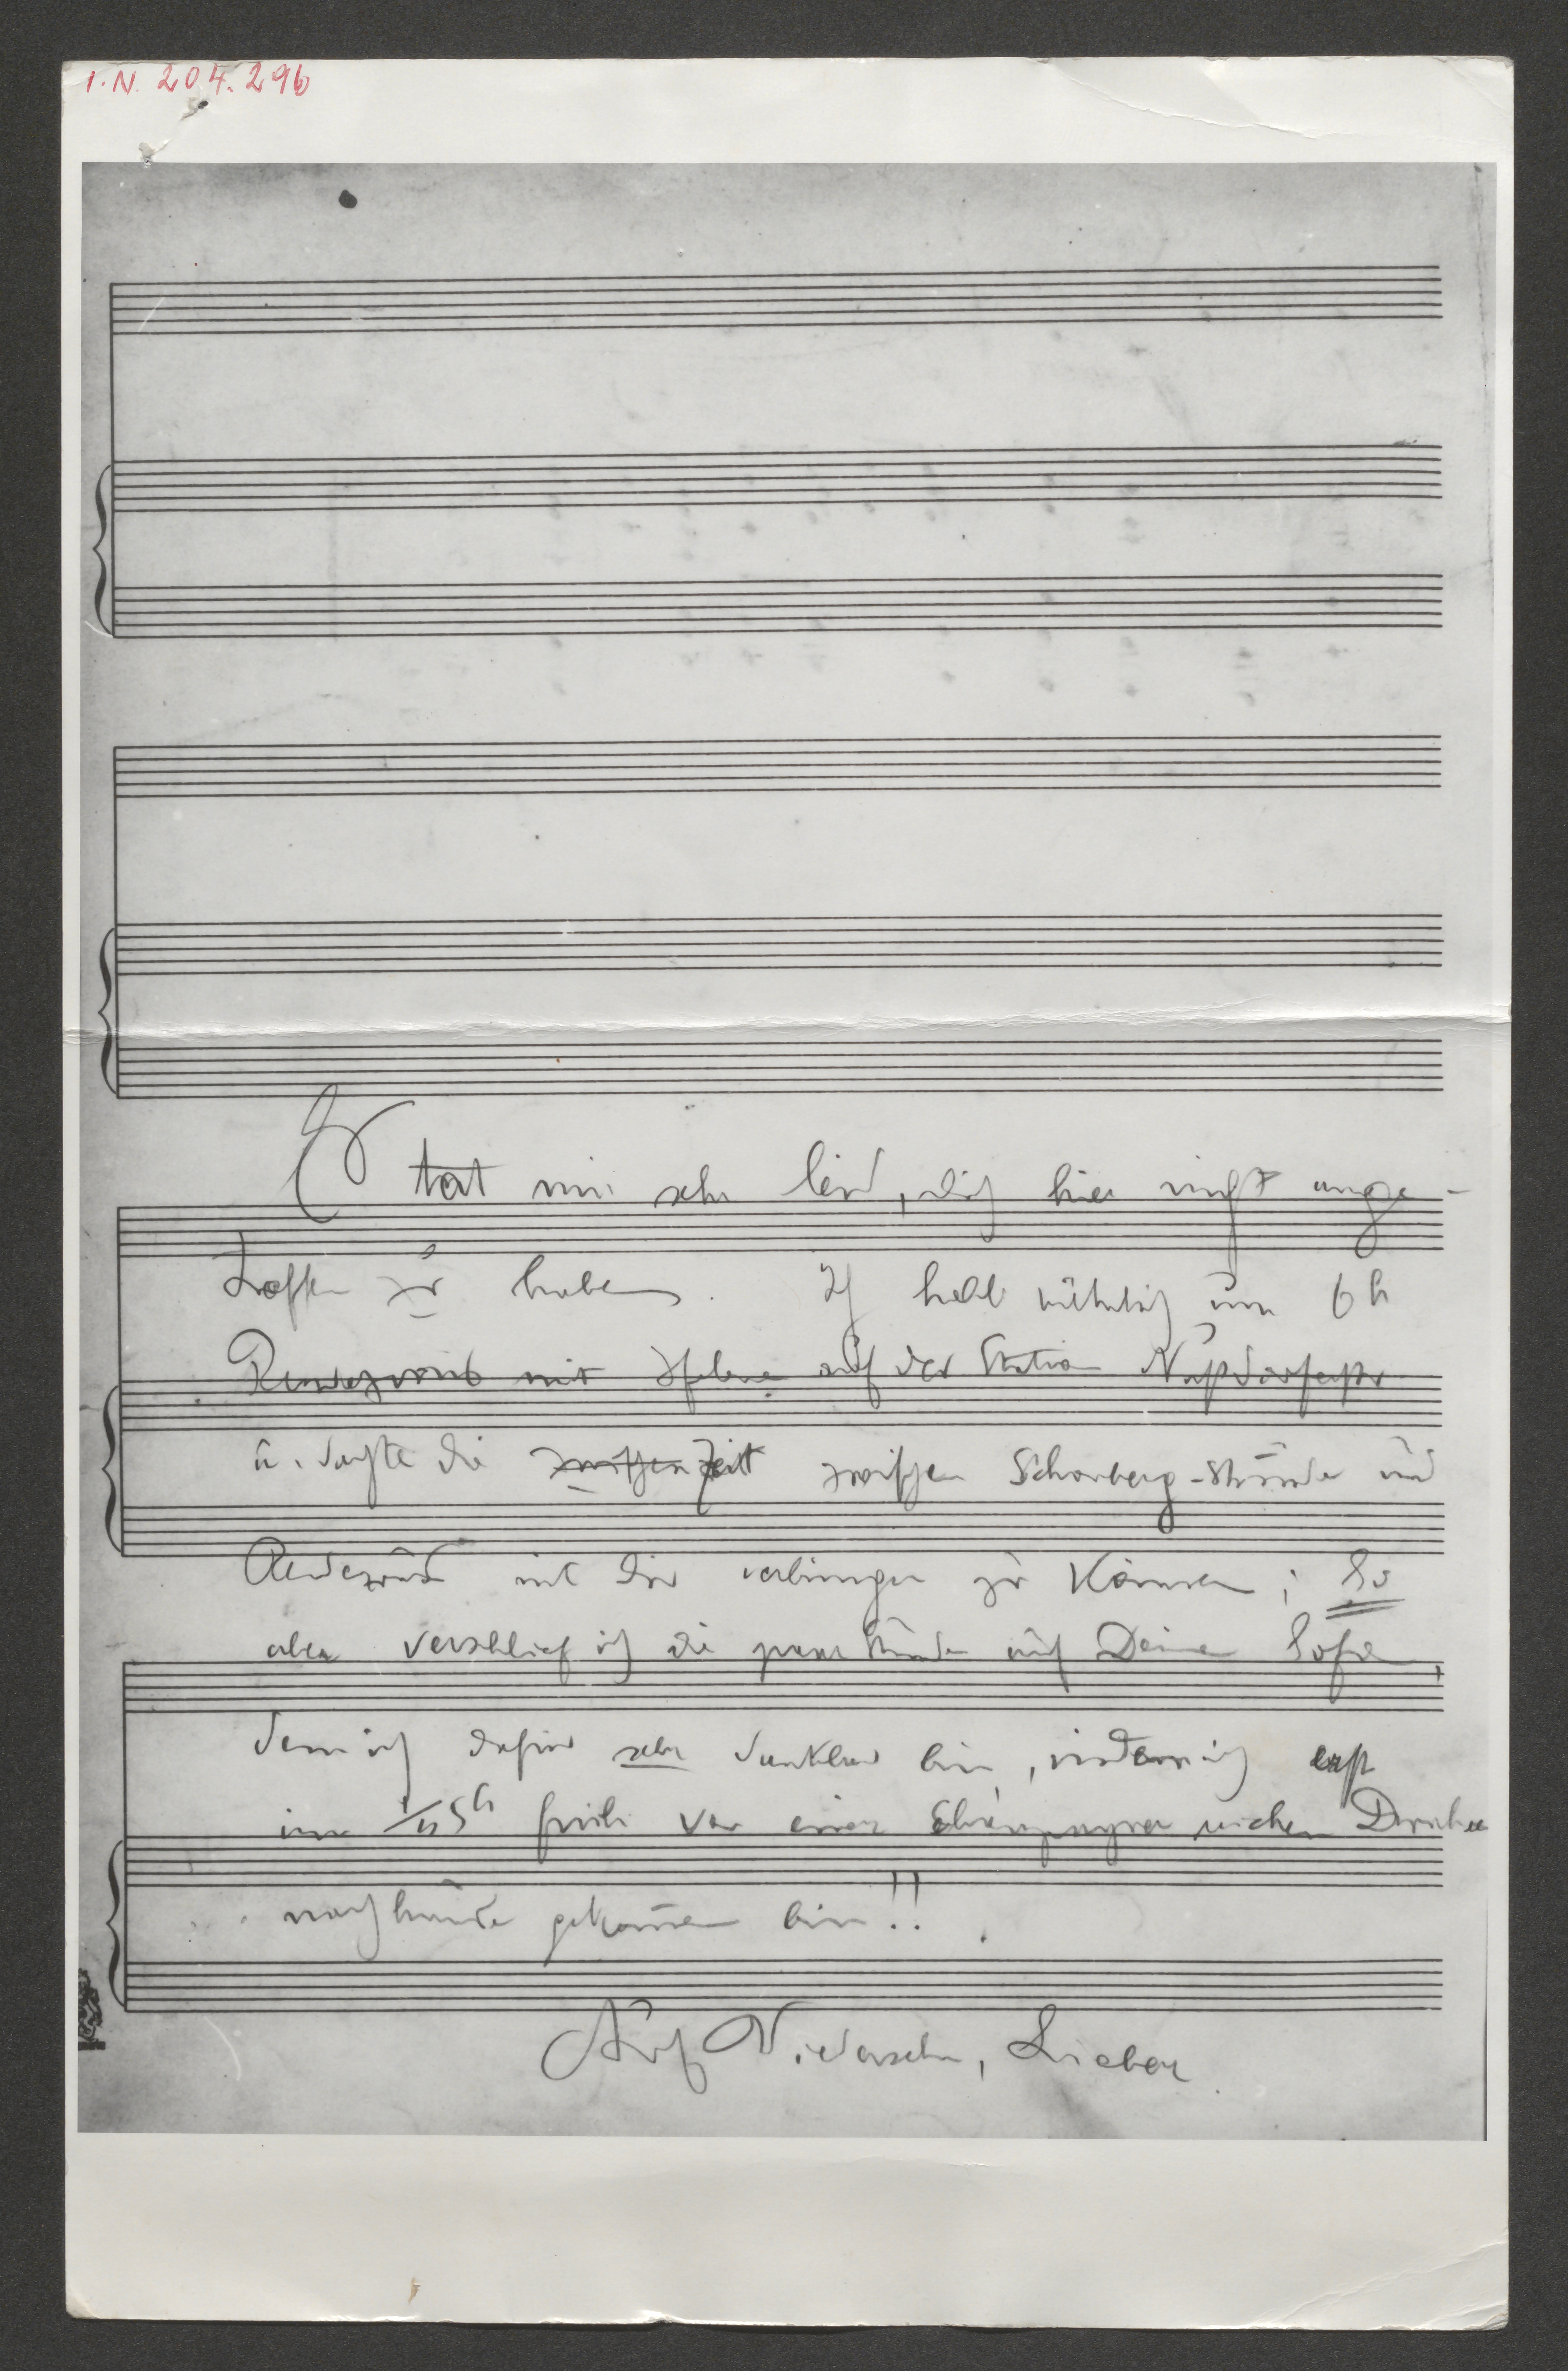 I.N. 204.296
Es tat mir sehr leid, dich hier nicht ange-
troffen zu haben. Ich hatte nämlich um 6 h
Rendezvous mit Helene auf der Station Nußdorferstr
u. dachte die zwischen Zeit zwischen Schönberg-Stunde und
Rendezvous mit dir verbringen zu können; So
aber verschlief ich die paar Stunden auf Deinem Sofa,
dem ich dafür sehr dankbar bin, indem ich erst
um 5h früh von einer Champagner reichen
nachhause gekommen bin!!
Auf Wiedersehn, Lieber